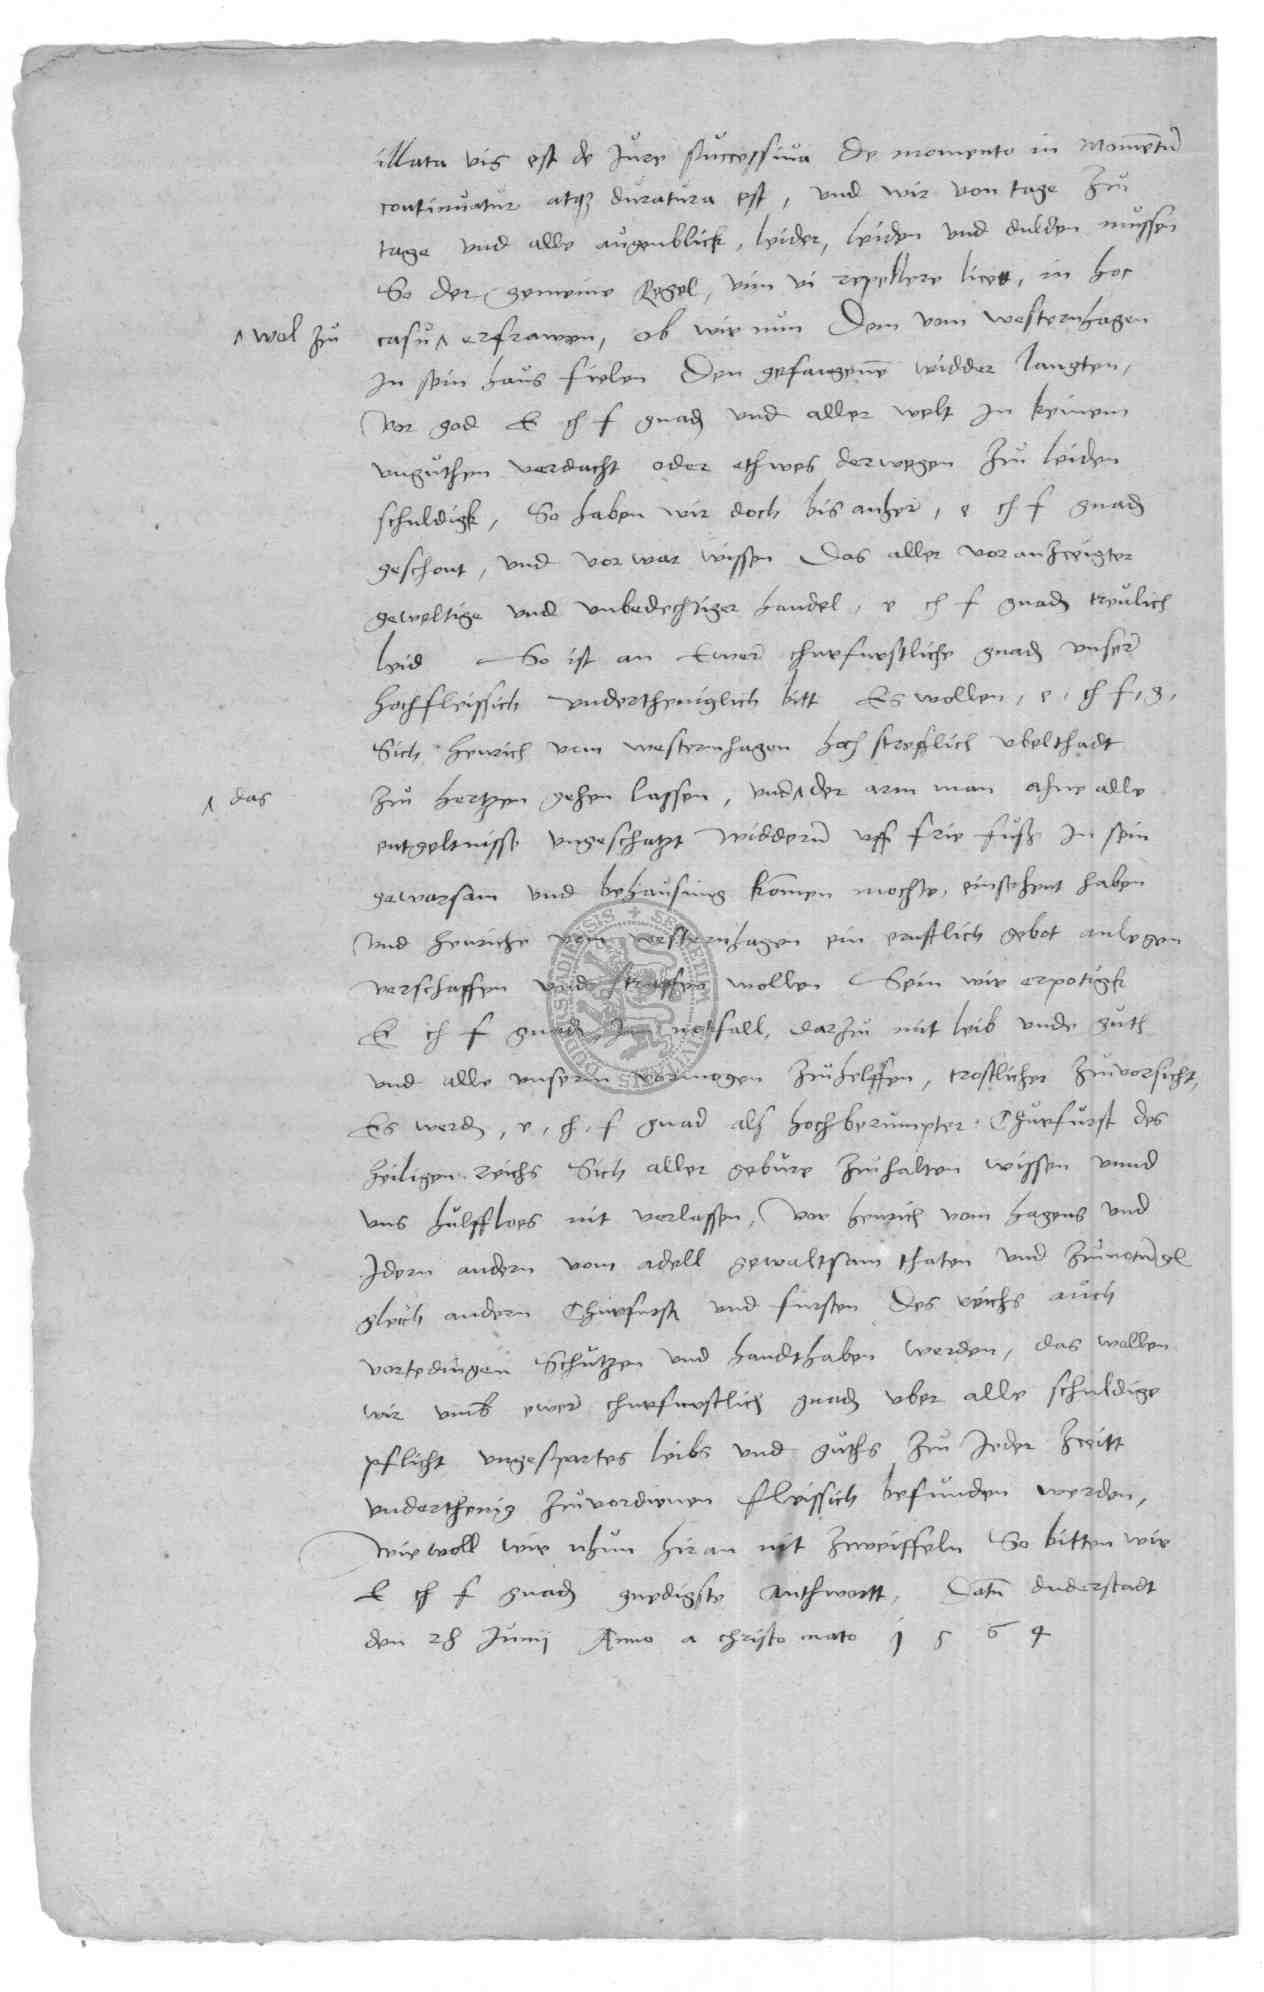 illata vis est de Jure successiva De momento in Momentũ
continuatur atqȝ duratura est, und wir von tage zu
tage vnd alle augenblick, leider, leiden vnd dulden mussen
So der gemeine Regel, vim vi repellere licet, in hoc
^ wol zu casu ^ erfrawen, ob wir nun Dem vom westernhagen
In sein haus fielen Den gefangenẽ widder langten,
Vor god E ch f gnadȝ vnd aller welt In keinem
vnguthen verdacht oder ethwes derwegen zu leiden
schuldigk, So haben wir doch bis anher, e ch f gnadȝ
geschont, vnd vor war wissen Das aller vor anzeigter
geweltige vnd vnbedechtiger handel, e ch f gnadȝ treulich
leid So ist an Ewer churfurstliche gnadȝ vnser
hochfleissich vndertheniglich bitt Es wollen, e, ch f, g,
Sich Henrich vom westernhagen hoch strefflich vbelthadt
^ das zu hertzen gehen lassen, vnd ^ der arm man ahne alle
entgeltnisse vngeschatzt widderũ vff frie fuß In sein
gewarsam vnd behausung kõmen mochte, einsehent haben
Vnd Henriche vom westernhagen ein ernstlich gebot anlegen
verschaffen vnd straffen wollen Sein wir erpotigk
E ch f gnadȝ Im notfall, darzu mit leib vnde guth
vnd alle vnserm vormogen zuhelffen, trostlicher zuvorsicht,
Es werdȝ, e, ch, f gnad als hochberumpter Churfurst des
heiligen reichs Sich aller gebure zuhalten wissen vnnd
vns hulffloes nit verlassen, Vor henrich vom hagens vnd
Idern andern vom adell gewaltsam thaten vnd
gleich andern Churfurstȝ vnd fursten Des reichs auch
vortedingen Schutzen vnd handthaben werden, das wollen
wir vmb ewer churfurstlich gnadȝ vber alle schuldige
pflicht vngespartes leibs vnd guths zu Jeder zeitt
vnderthenig zuvordienen fleissich befunden werden,
Wiewoll wir nhun hir an nit zweiffeln So bitten wir
E ch f gnadȝ gnedigste Anthwortt, Datũ duderstadt
den 28 Junij Anno a christo nato 1 5 6 4